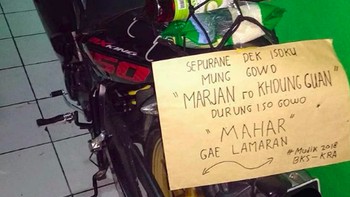 KING
SEPURANE DEK ISOKU
MUNG GOWO
"MARJAN RO KHOUNG GUAN"
DURUNG ISO GOWO
"MAHAR"
GAE LAMARAN
#Mudik 2018
BKS-KRA